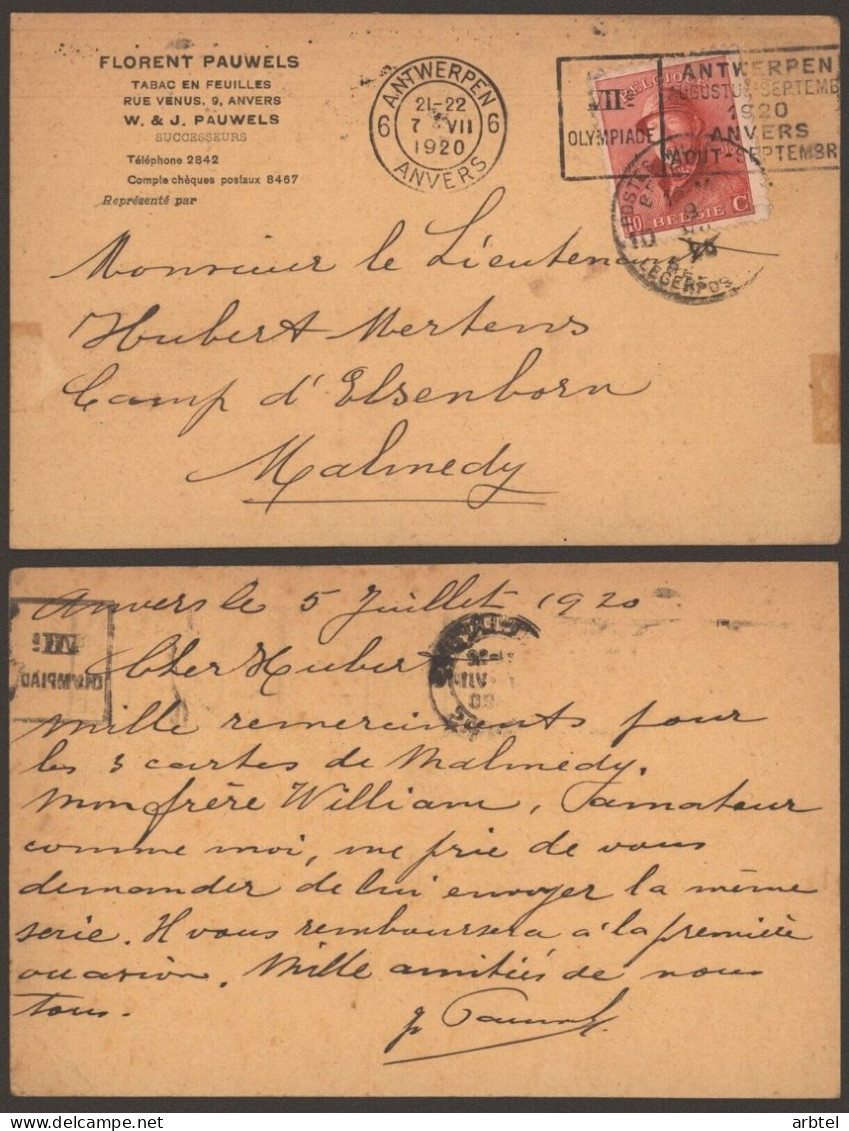 FLORENT PAUWELS
TABAC EN FEUILLES
RUE VÉNUS, 9, ANVERS
W. & J. PAUWELS
SUCCESSEURS
Téléphone 2842
Compte chèques postaux 8467
Représenté par
ANTWERPEN
6 21-22 6
7 VII
1920
ANVERS
VIIe
OLYMPIADE
ANTWERPEN
AUGUSTUS-SEPTEMB
1920
ANVERS
AOUT-SEPTEMBR
BELGIQUE
10 BELGIE C
POSTES
LEGERPOS
Monsieur le Lieutenant
Hubert Mertens
Camp d'Elsenborn
Malmedy
Anvers le 5 Juillet 1920
Cher Hubert
VIIe
OLYMPIAD
Mille remerciments pour
les 3 cartes de Malmedy.
Mon frère William, amateur
comme moi, me prie de vous
demander de lui envoyer la même
serie. Il vous remboursera à la première
occasion. Mille amitiés de nous
tous.
arbtel